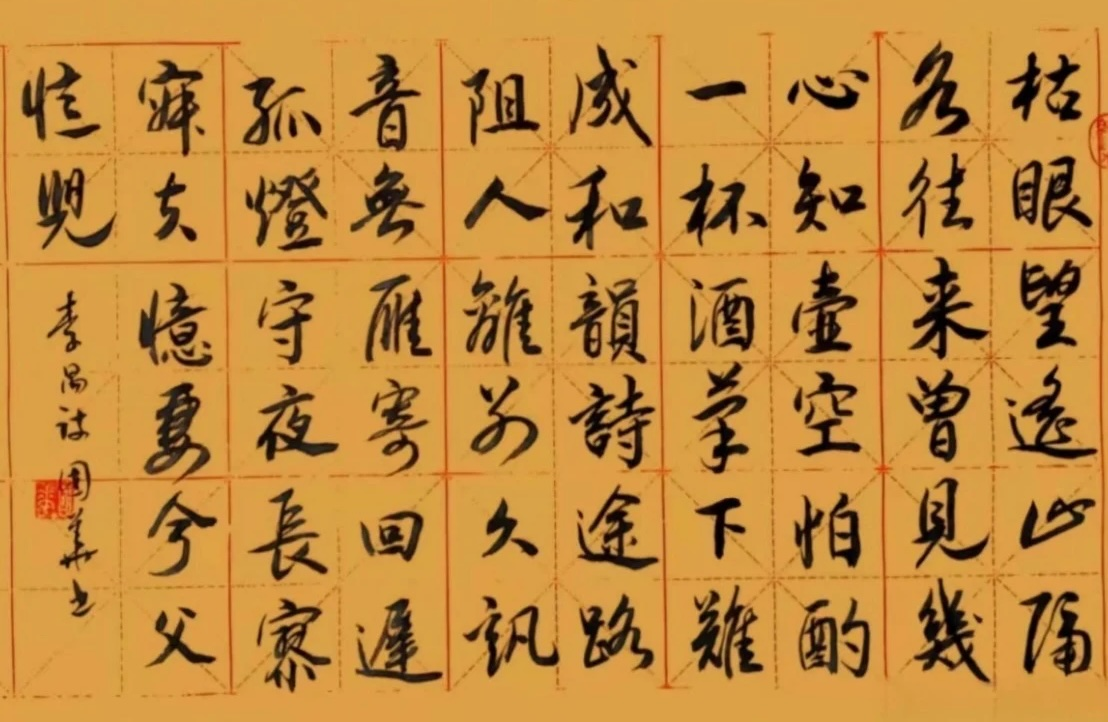 枯眼望遙山隔
水往来曾見幾
心知壺空怕酌
一杯酒筆下難
成和韻詩途路
阻人離别久訊
音無雁寄回遲
孤燈守夜長寥
寂夫憶妻兮父
憶兒
李禺詩国華书